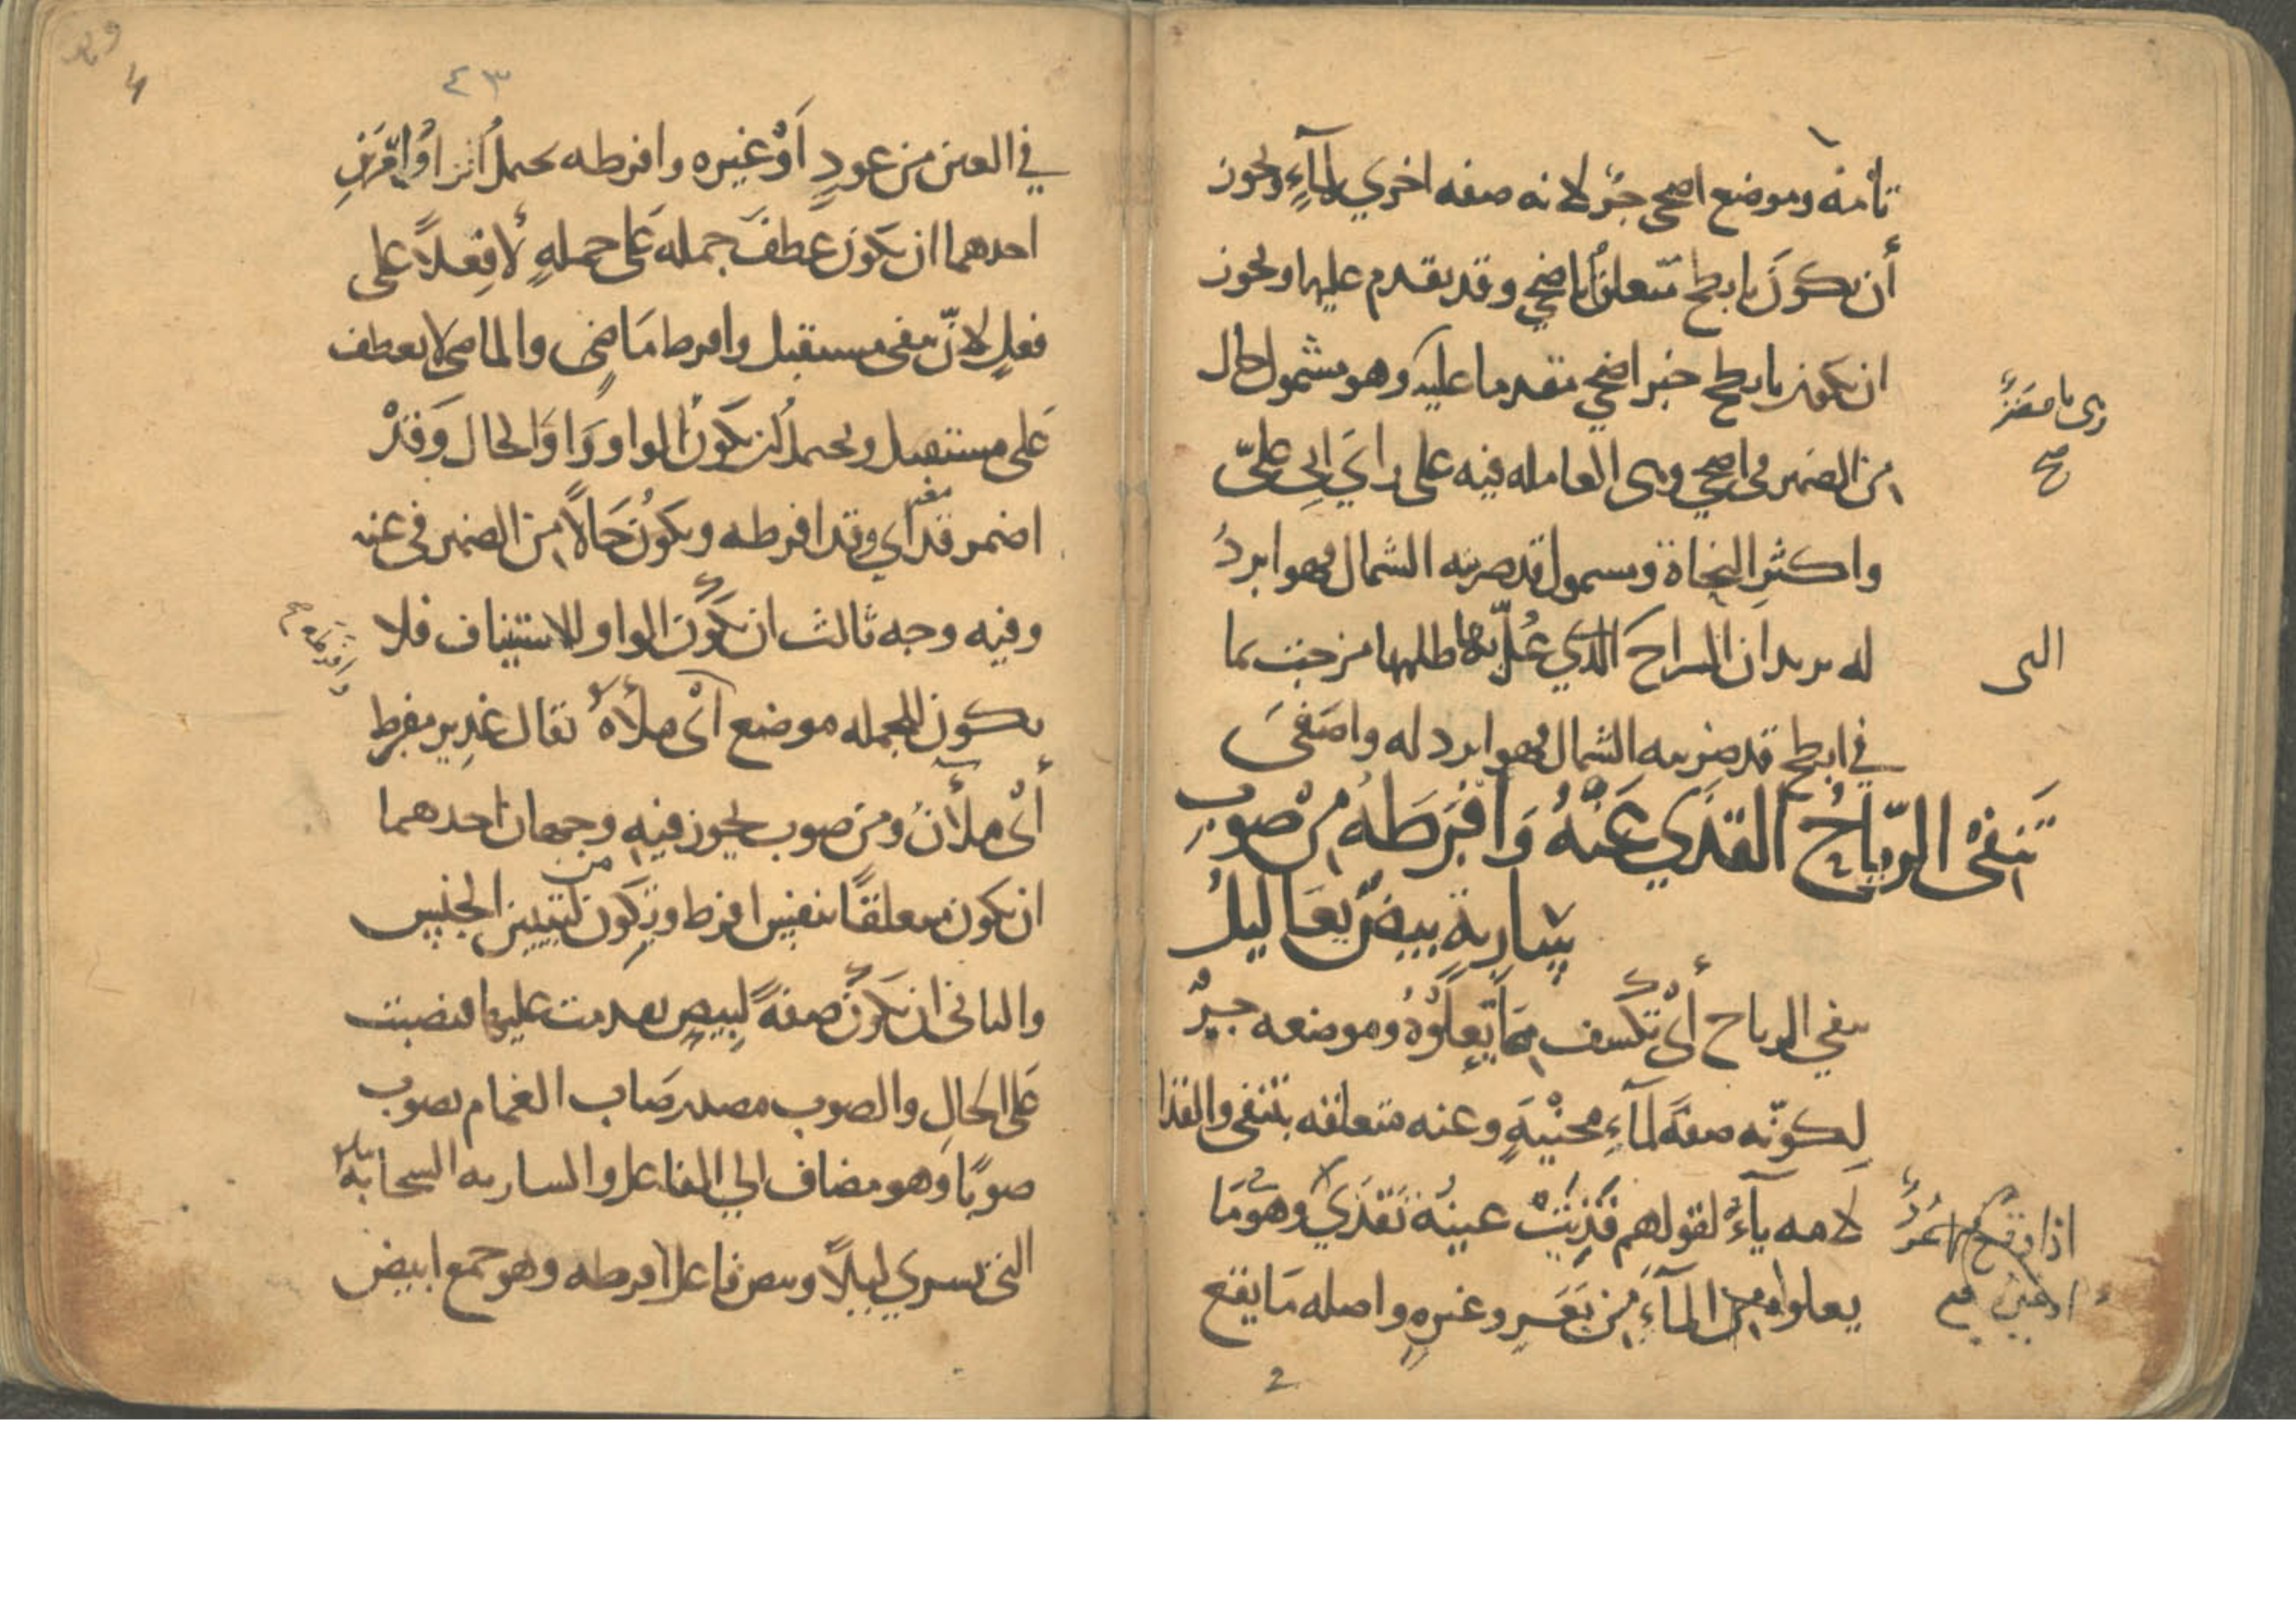 تامه وموضع اضحى جر لانه صفه اخرى لماء ويجوز
أن يكون بابطح متعلق باضحى وقد تقدم عليها ويجوز
ان يكون بابطح خبر اضحى مقدما عليه وهو مشمول حال
من الضمير في اضحى وهى العامله فيه على راي ابي عليّ
واكثر النحاة ومشمول قد ضربته الشمال فهو ابردُ
له يريد ان الراح الذي عُلّ بها طلها من جنب ما
التى
في ابطح قد ضربته الشمال فهو ابرد له واصفى
تَنفى الرّياحُ القذَي عَنْهُ وَافرَطَهُ مِنْ صَوبِ
سَارِيةٍ بِيضٌ يَعَاليلُ
تنفي الرياح أىْ تكسف مما يعلوه وموضعه جرٌّ
لِكونه صفةً لماءِ محنيةٍ وعنه متعلقه بتنفى والقذا
لامه ياءٌ لقولهم قَذِيَتْ عينه تَقْذَي وهو مَا
اذا وقع فيها
يعلوا من الماءِ من بَعَرٍ وغيرهِ واصله مَا يقع
صح
٤٣
في العين من عودٍ اَوْ غيره وافرطه يحتمل امرا
احدهما ان يكون عطفَ جمله عَلى جملهٍ لا فِعلاً على
فعلٍ لانّ تنفى مستقبل وافرط مَاضٍى والماضى لا يعطف
عَلى مستقبل ويحتمل ان يكون الواو وَاوَ الحال وَقدْ
اضمر قد اي وقد افرطه ويكونُ حَالاً من الضمير في عنه
معه
وفيه وجه ثالث ان تكون الواو للاستيناف فلا
يكون للجمله موضع اىْ ملأهُ يقال غدِير مفرط
أىْ ملأن ومن صوب يجوز فيهِ وجهان احدهما
ان يكون متعلقًا بنفس افرط وتكون من لتبيين الجنس
والثانى ان تكون صفةً لبِيضٍ تقدمت عليها فنصبت
عَلى الحالِ والصوب مصدر صَاب الغمام يصوب
صوبًا وَهو مضاف الي الفاعل والساريه السحابه
التى تسري ليلاً وبيض فاعل افرطه وهو جمع ابيض